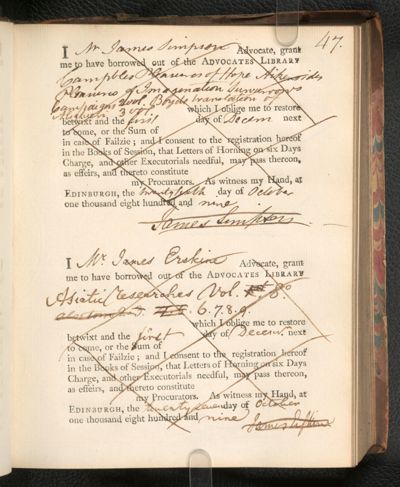 47.
I Mr. James Simpson Advocate, grant
me to have borrowed out of the ADVOCATES LIBRARY
Campbles Pleasures of Hope
Pleasures of Imagination
Campaigns 2 vol. Boyds translation of
3 vol which I oblige me to restore
betwixt and the first day of Decem next
to come, or the Sum of
in case of Failzie; and I consent to the registration hereof
in the Books of Session, that Letters of Horning on six Days
Charge, and other Executorials needful, may pass thereon,
as effeirs, and thereto constitute
my Procurators. As witness my Hand, at
EDINBURGH, the day of October
one thousand eight hundred and nine
James Simpson
I Mr. James Erskine Advocate, grant
me to have borrowed out of the ADVOCATES LIBRARY
Asiatic researches Vol. 8o
6. 7. 8. 9.
which I oblige me to restore
betwixt and the first day of Decem. next
to come, or the Sum of
in case of Failzie; and I consent to the registration hereof
in the Books of Session, that Letters of Horning on six Days
Charge, and other Executorials needful, may pass thereon,
as effeirs, and thereto constitute
my Procurators. As witness my Hand, at
EDINBURGH, the twenty seven day of October
one thousand eight hundred and nine
James Erskine